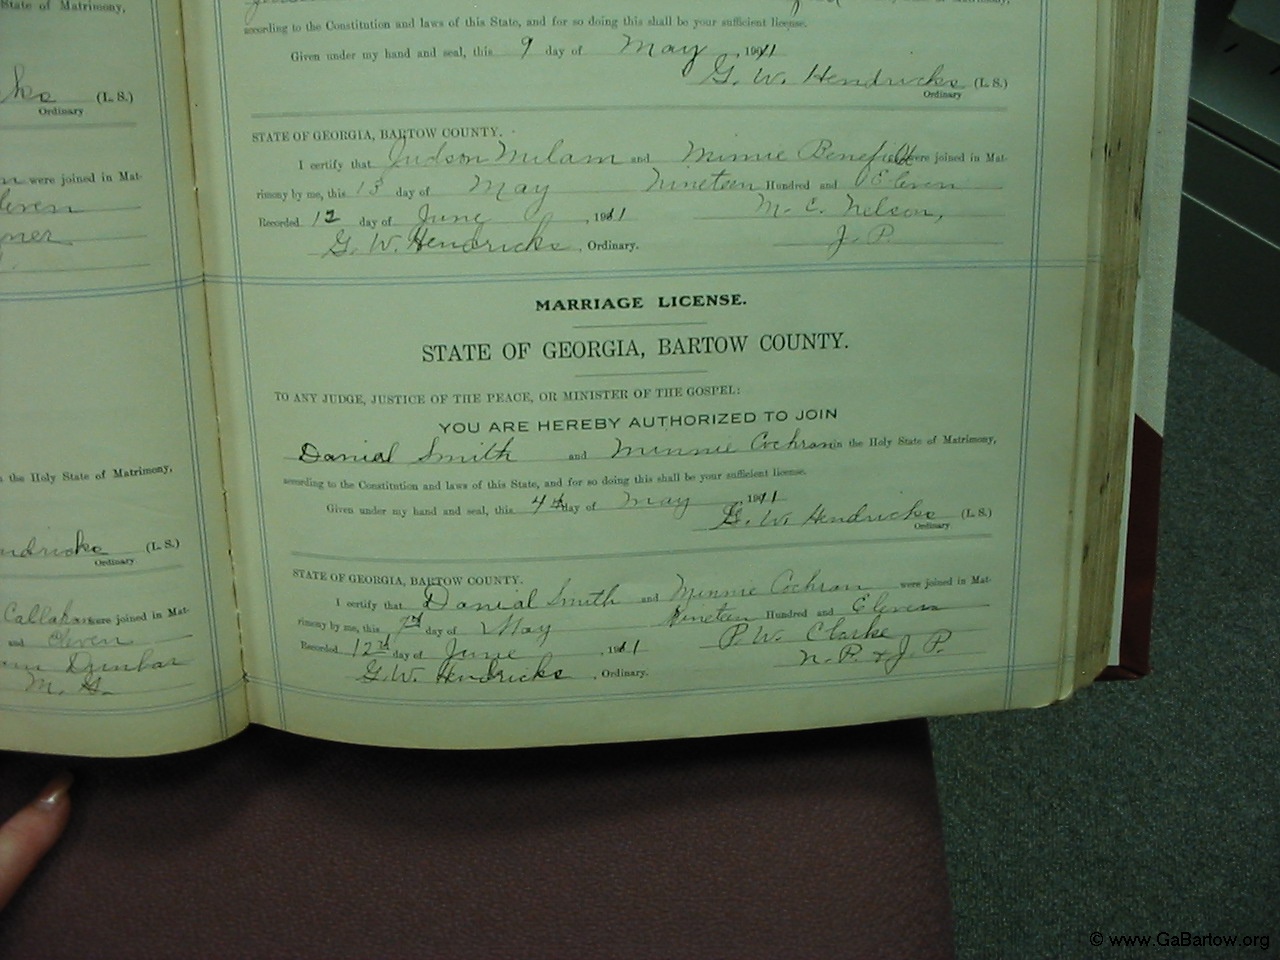 State of Matrimony,
(L. S.)
Ordinary
were joined in Mat-
M. G.
according to the Constitution and laws of this State, and for so doing this shall be your sufficient license.
Given under my hand and seal, this 9 day of May , 1911
G. W. Hendricks (L. S.)
Ordinary
STATE OF GEORGIA, BARTOW COUNTY.
I certify that Judson Milam and Minnie Benefield were joined in Mat-
rimony by me, this 13 day of May Nineteen Hundred and Eleven
Recorded 12 day of June , 1911 M. C. Nelson,
G. W. Hendricks , Ordinary. J. P.
MARRIAGE LICENSE.
STATE OF GEORGIA, BARTOW COUNTY.
TO ANY JUDGE, JUSTICE OF THE PEACE, OR MINISTER OF THE GOSPEL:
YOU ARE HEREBY AUTHORIZED TO JOIN
Danial Smith and Minnie Cochran in the Holy State of Matrimony,
according to the Constitution and laws of this State, and for so doing this shall be your sufficient license.
Given under my hand and seal, this 4th day of May , 1911
G. W. Hendricks (L. S.)
Ordinary
STATE OF GEORGIA, BARTOW COUNTY.
I certify that Danial Smith and Minnie Cochran were joined in Mat-
rimony by me, this 7th day of May Nineteen Hundred and Eleven
Recorded 12th day of June , 1911 P. W. Clarke
G. W. Hendricks , Ordinary. N. P. & J. P.
the Holy State of Matrimony,
(L. S.)
Ordinary
Callahan were joined in Mat-
and Eleven
Dunbar
M. G.
© www.GaBartow.org